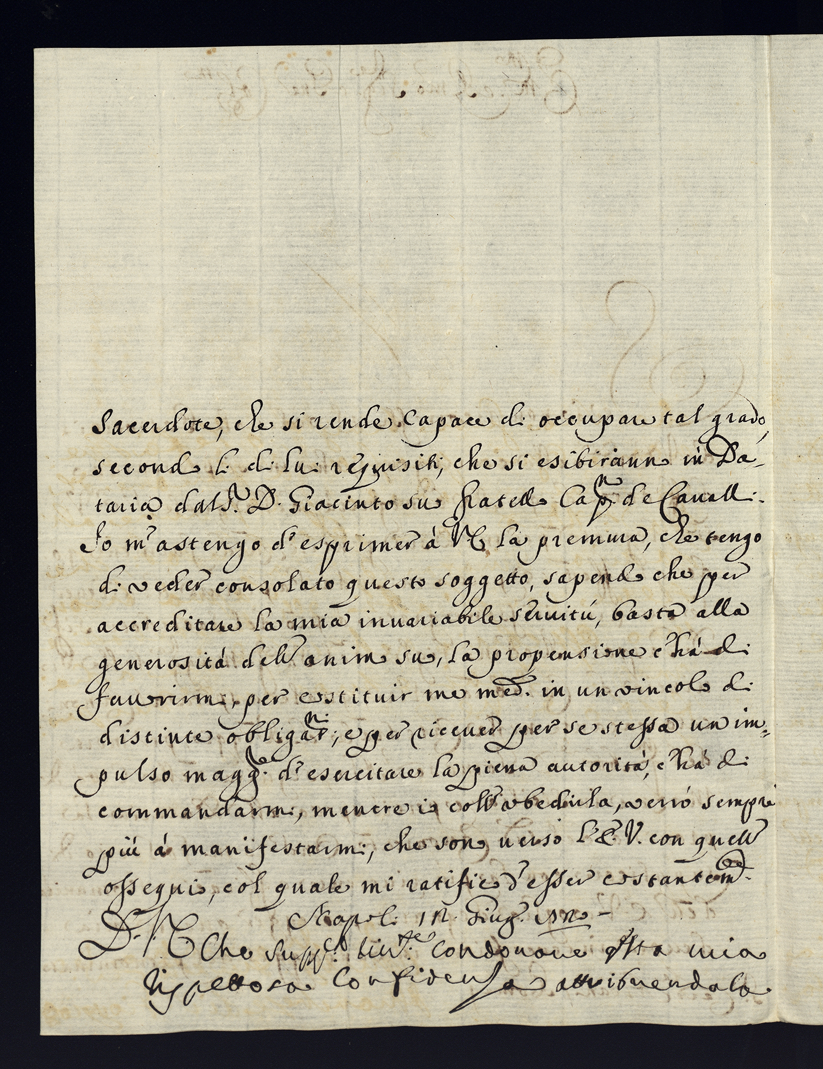 Sacerdote, che si rende capace di occupare tal grado,
secondo li di lui requisiti, che si esibiranno in Da-
taria dal Sr. D. Giacinto suo fratello Capn. de Cavalli.
Io m'astengo d'esprimer à VE la premura, che tengo
di veder consolato questo soggetto, sapendo che per
accreditare la mia invariabile servitù, basta alla
generosità dell'animo suo, la propensione c'hà di
favorirmi, per costituir me med.o in un vincolo di
distinte obligani, e per ricever per se stessa un im-
pulso magg.re d'esercitare la piena autorità, c'hà di
commandarmi, mentre io coll'obedirla, verrò sempre
più à manifestarmi, che sono verso l'E.V. con quell'
ossequio, col quale mi ratifico d'esser costantem.te
D. V. E Napoli Giug.o
Che supp.o condonare qsta mia
rispettosa confidenza attribuendola